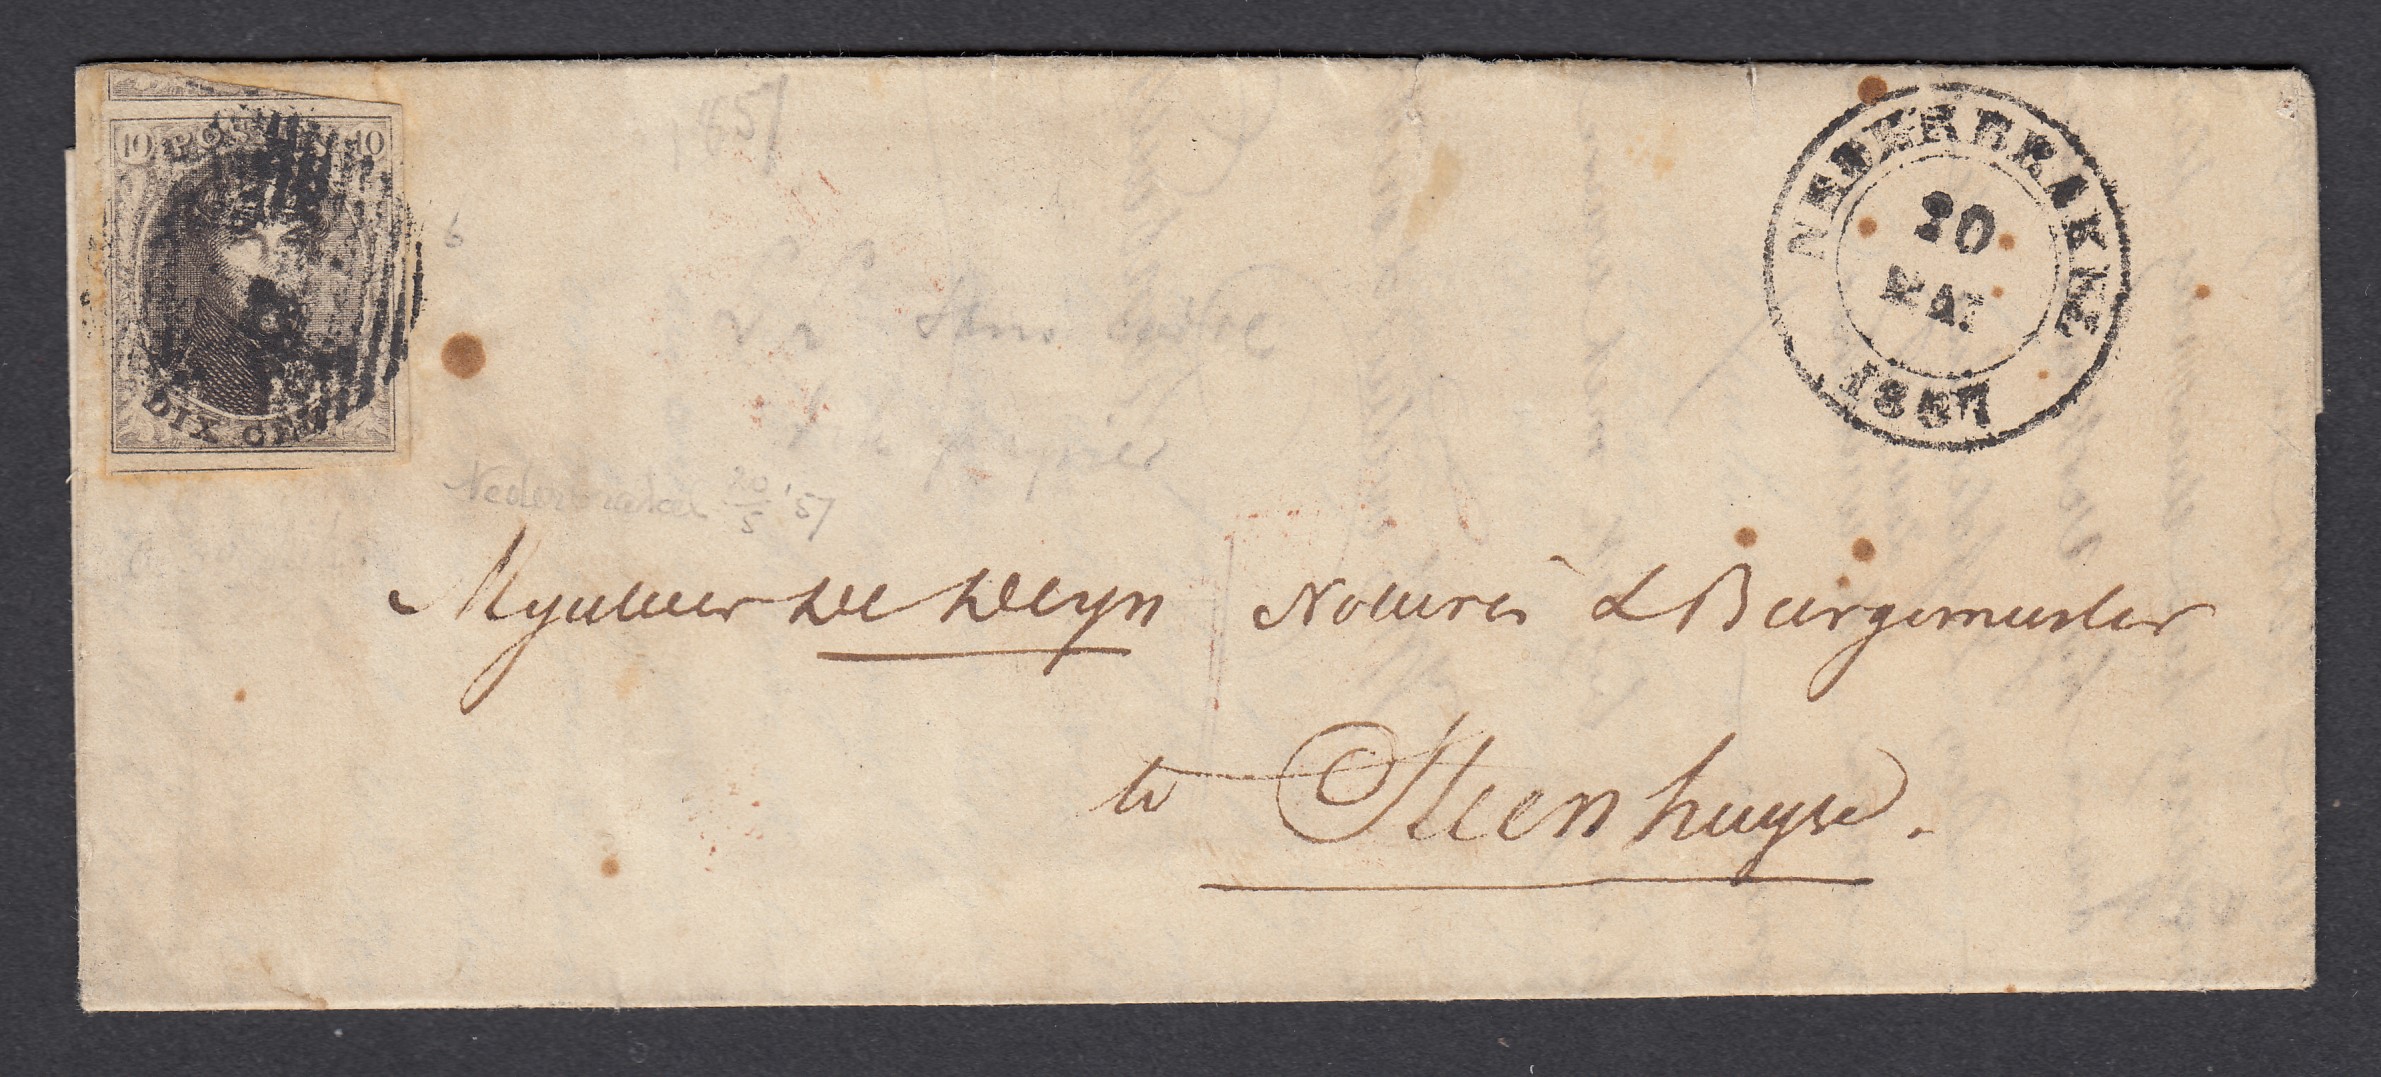 10 POSTES 10
DIX CEN
NEDERBRAKEL
20
MAI
1857
1857
6
Sans
papier
Nederbrakel 20/5 '57
Mynheer De Deyn Notaris & Burgemeester
te Steenhuyse.